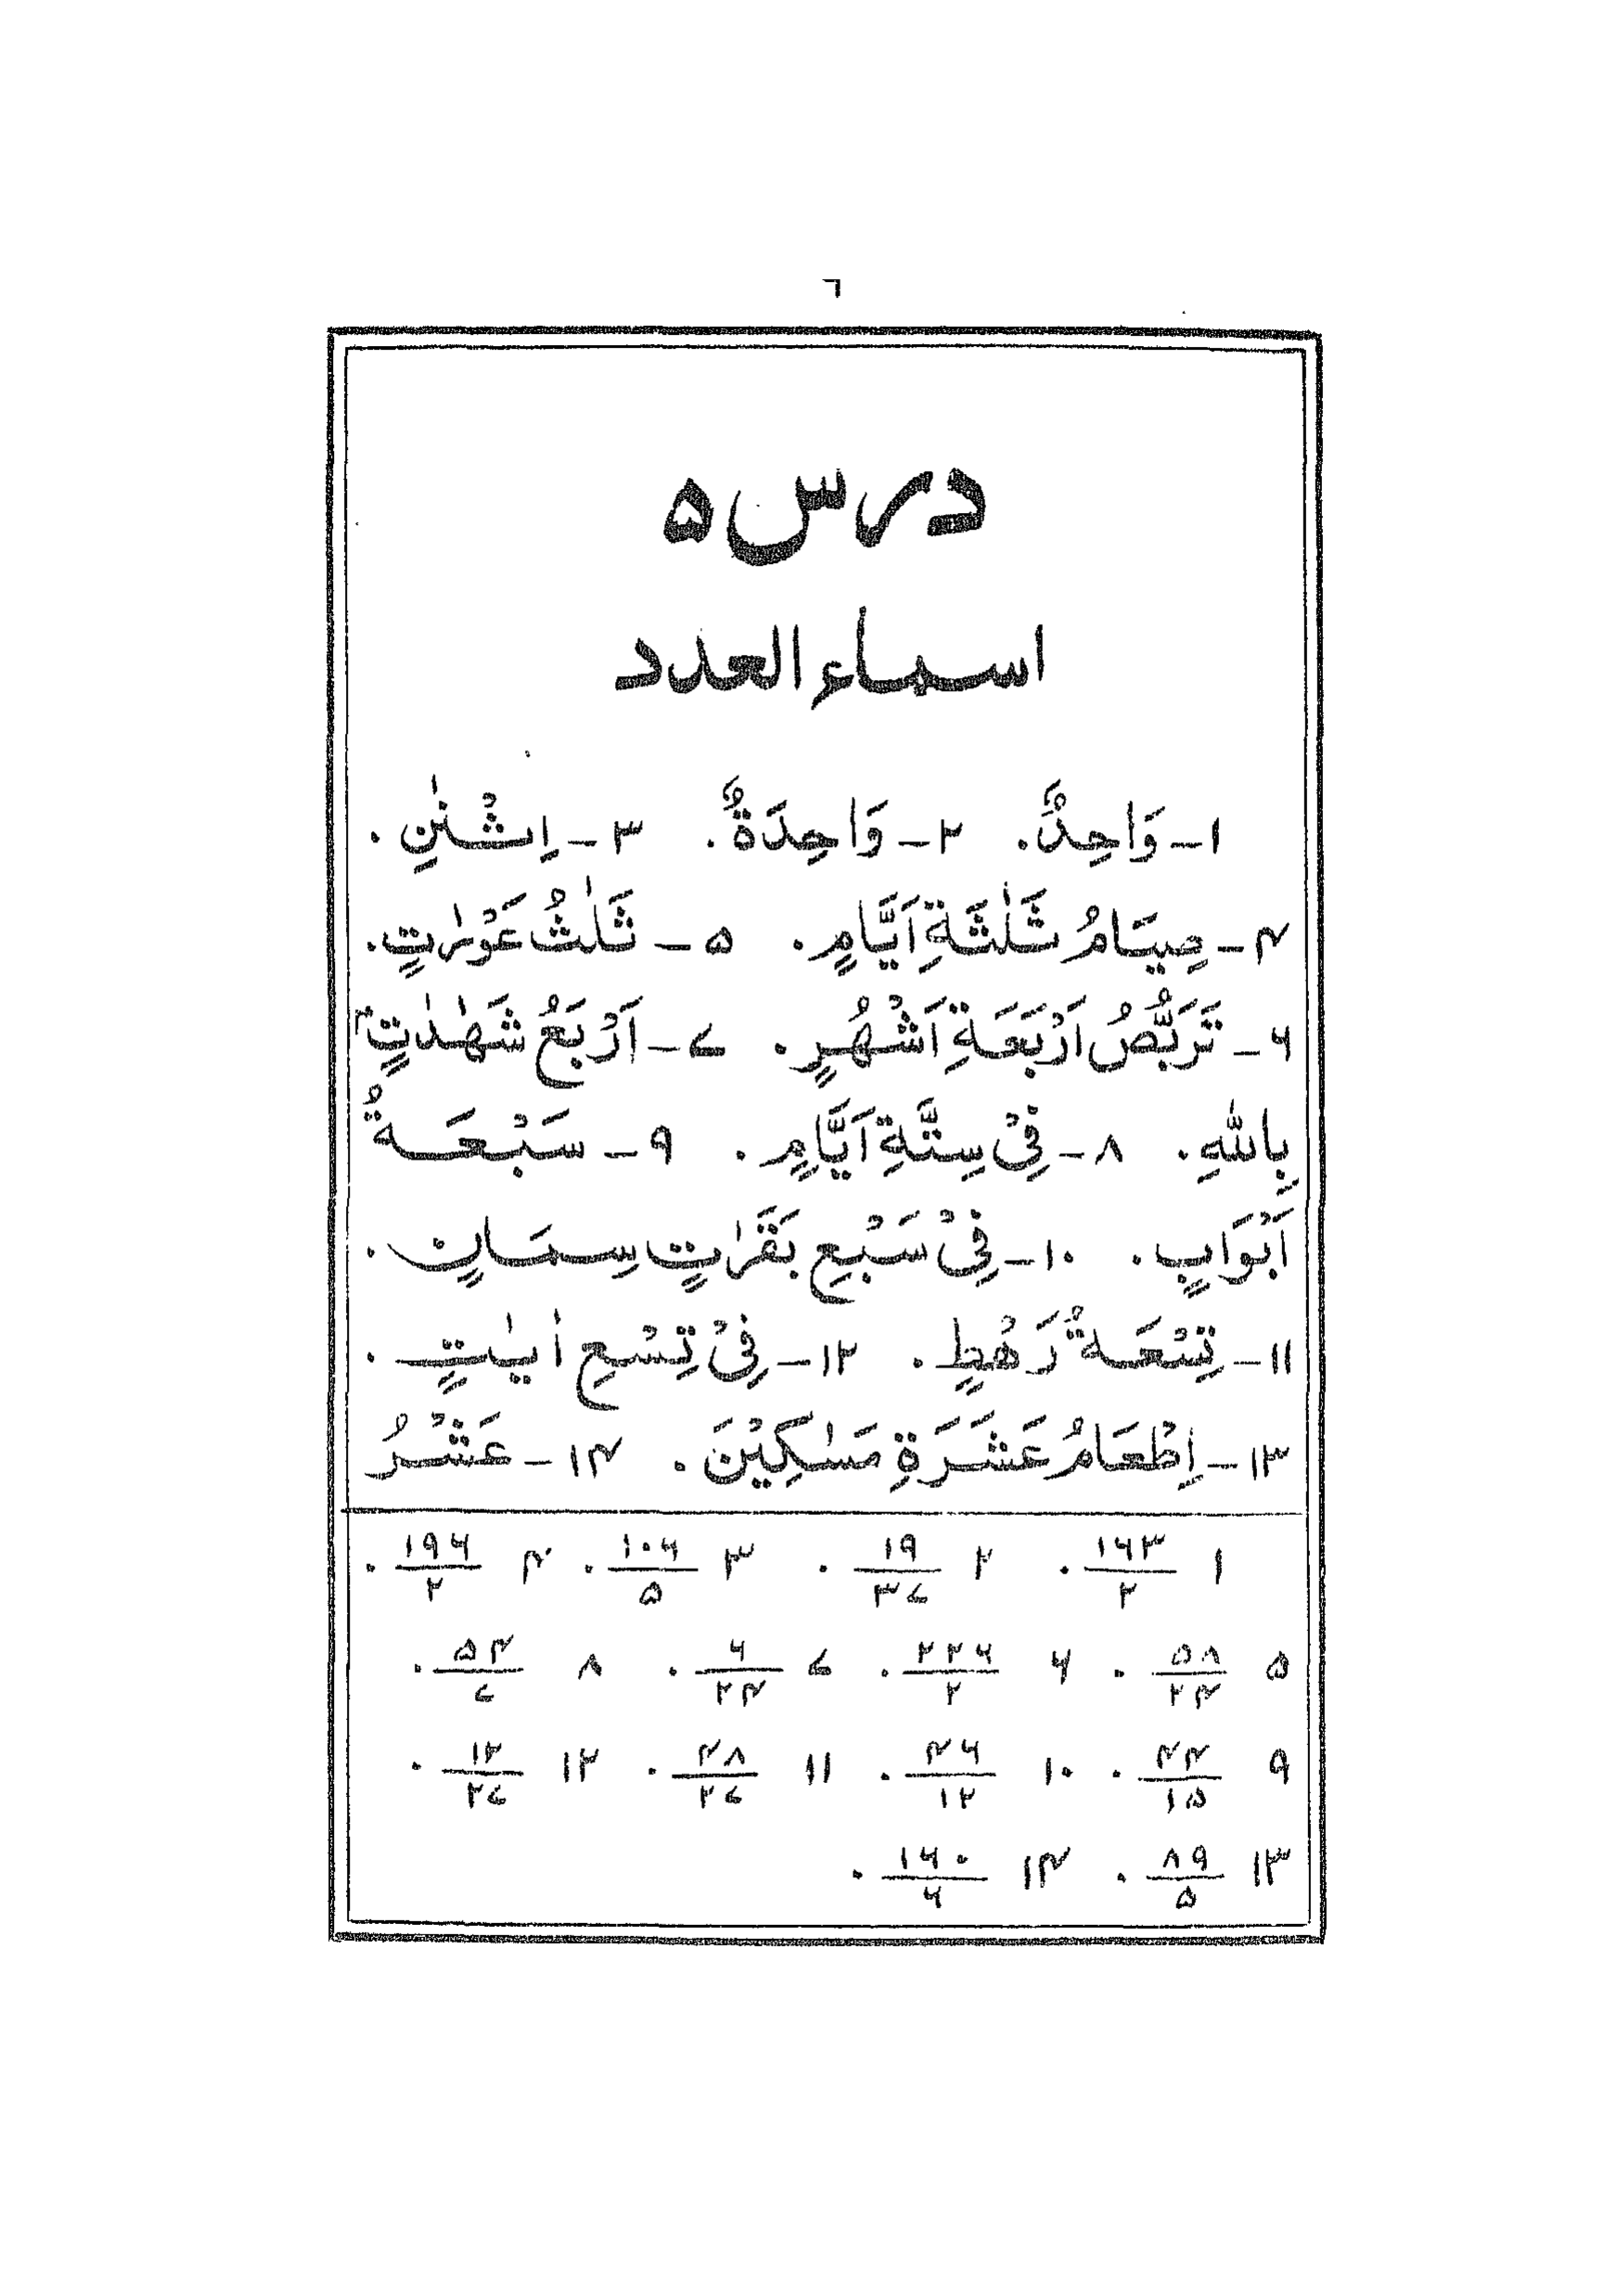 ٦
درس ۵
اسماء العدد
۱ـ وَاحِدٌ. ۲ـ وَاحِدَةٌ. ۳ـ اِثْنٰنِ.
۴ـ صِيَامُ ثَلٰثَةِ اَيَّامٍ. ۵ـ ثَلٰثُ عَوْرٰتٍ.
۶ـ تَرَبُّصُ اَرْبَعَةِ اَشْهُرٍ. ۷ـ اَرْبَعُ شَهٰدٰتٍۢ
بِاللّٰهِ. ۸ـ فِيْ سِتَّةِ اَيَّامٍ. ۹ـ سَبْعَةُ
اَبْوَابٍ. ۱۰ـ فِيْ سَبْعِ بَقَرٰتٍ سِمَانٍ.
۱۱ـ تِسْعَةُ رَهْطٍ. ۱۲ـ فِيْ تِسْعِ اٰيٰتٍ.
۱۳ـ اِطْعَامُ عَشَرَةِ مَسٰكِيْنَ. ۱۴ـ عَشْرُ
۱ ۱۶۳/۲. ۲ ۱۹/۳۷. ۳ ۱۰۶/۵. ۴ ۱۹۶/۲.
۵ ۵۸/۲۴. ۶ ۲۲۶/۲. ۷ ۶/۲۴. ۸ ۵۴/۷.
۹ ۴۴/۱۵. ۱۰ ۴۶/۱۲. ۱۱ ۴۸/۲۷. ۱۲ ۱۲/۲۷.
۱۳ ۸۹/۵. ۱۴ ۱۶۰/۶.